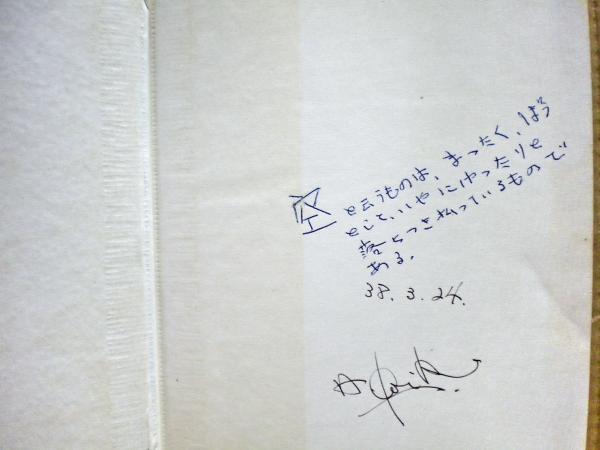 空 と云うものは、まったく、ばう
としていやにゆったりと
落ちつき払っているもので
ある。
38. 3. 24.